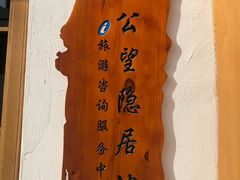 公望隐居
旅游咨询服务中